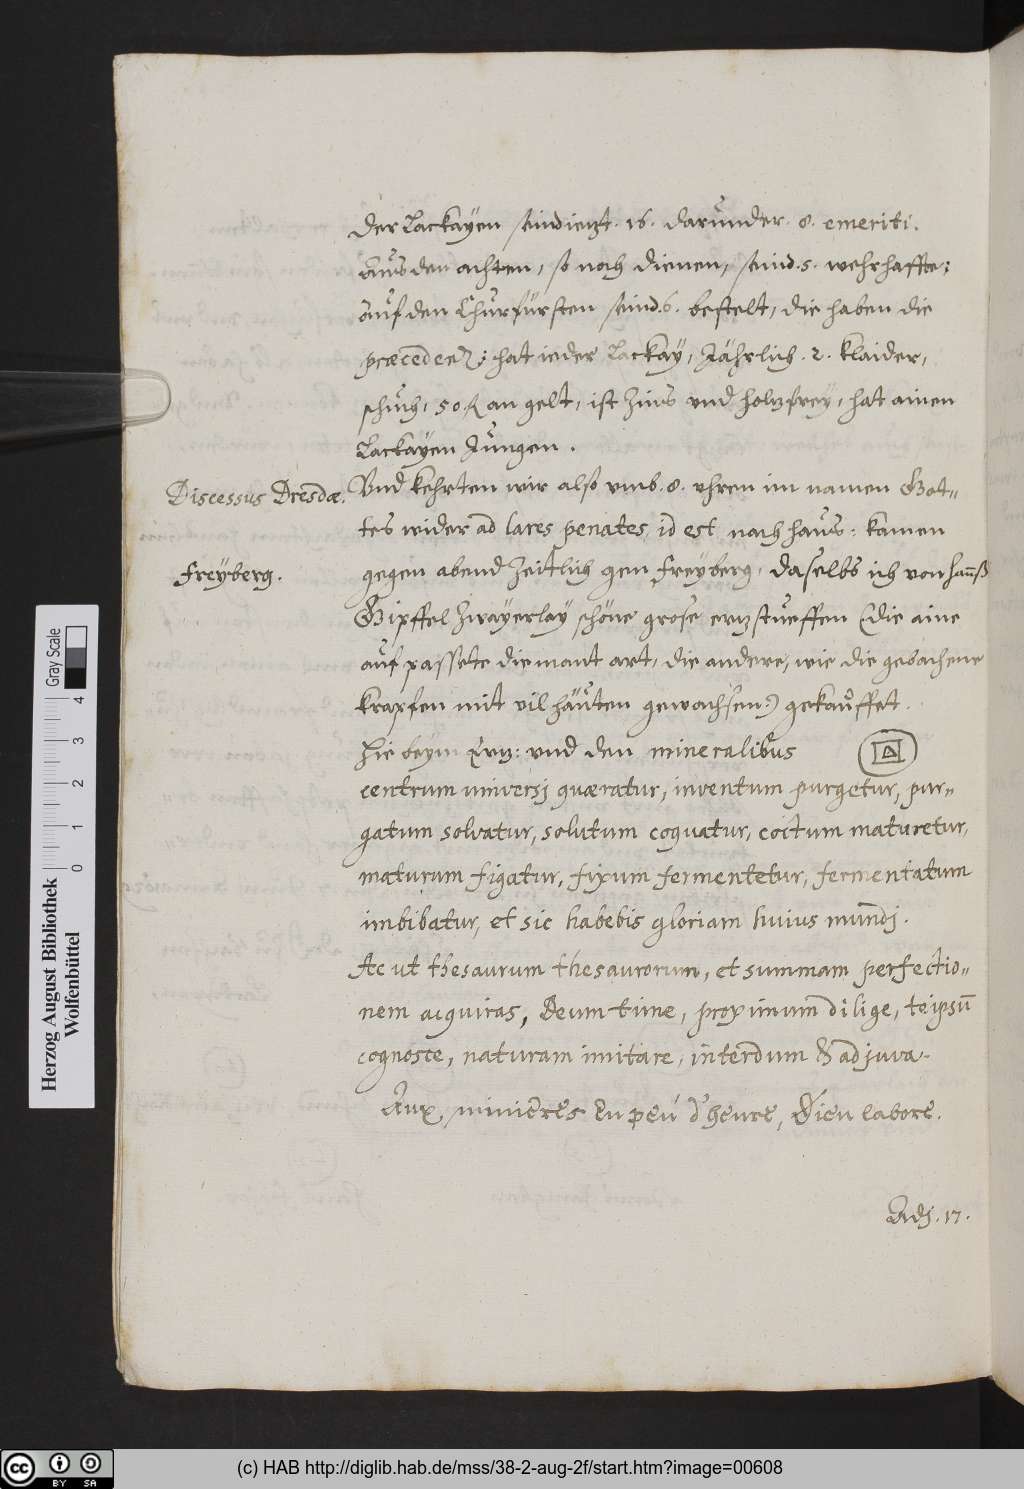 der Lackayen seind ietzt. 16. darunder. 8. emeriti.
Aus den achten, so noch dienen, seind. 5. wehrhaffte;
auf den Churfürsten seind. 6. bestelt, die haben die
præcedenz: hat ieder Lackay, Jährlich. 2. Klaider,
schuch, 50. fl an gelt, ist Zins vnd holzfrey, hat ainen
Lackayen Jungen.
Discessus Dresdæ.
Vnd kehrten wir also vmb. 8. vhren im namen Got-
tes wider ad lares penates, id est nach haus: kamen
Freyberg.
gegen abend Zeitlich gen Freyberg, daselbs ich von hannß
Gipffel Zwayerlay schöne grose erzstueffen (die aine
auf passete diemant art, die andere, wie die gebachene
krapfen mit vil häuten gewachsen:) gekauffet.
Hie beym Erz: vnd den mineralibus
centrum universj quæratur, inventum purgetur, pur-
gatum solvatur, solutum coquatur, coctum maturetur,
maturum figatur, fixum fermentetur, fermentatum
imbibatur, et sic habebis gloriam huius mundj.
Ac ut thesaurum thesaurorum, et summam perfectio-
nem acquiras, Deum time, proximum dilige, teipsũ
cognosce, naturam imitare, interdum & adjuva.
Aux, minieres En peú d'heure, Dieu labore.
Adj. 17.
Herzog August Bibliothek
Wolfenbüttel
0 1 2 3 4
Gray Scale
cc BY SA
(c) HAB http://diglib.hab.de/mss/38-2-aug-2f/start.htm?image=00608